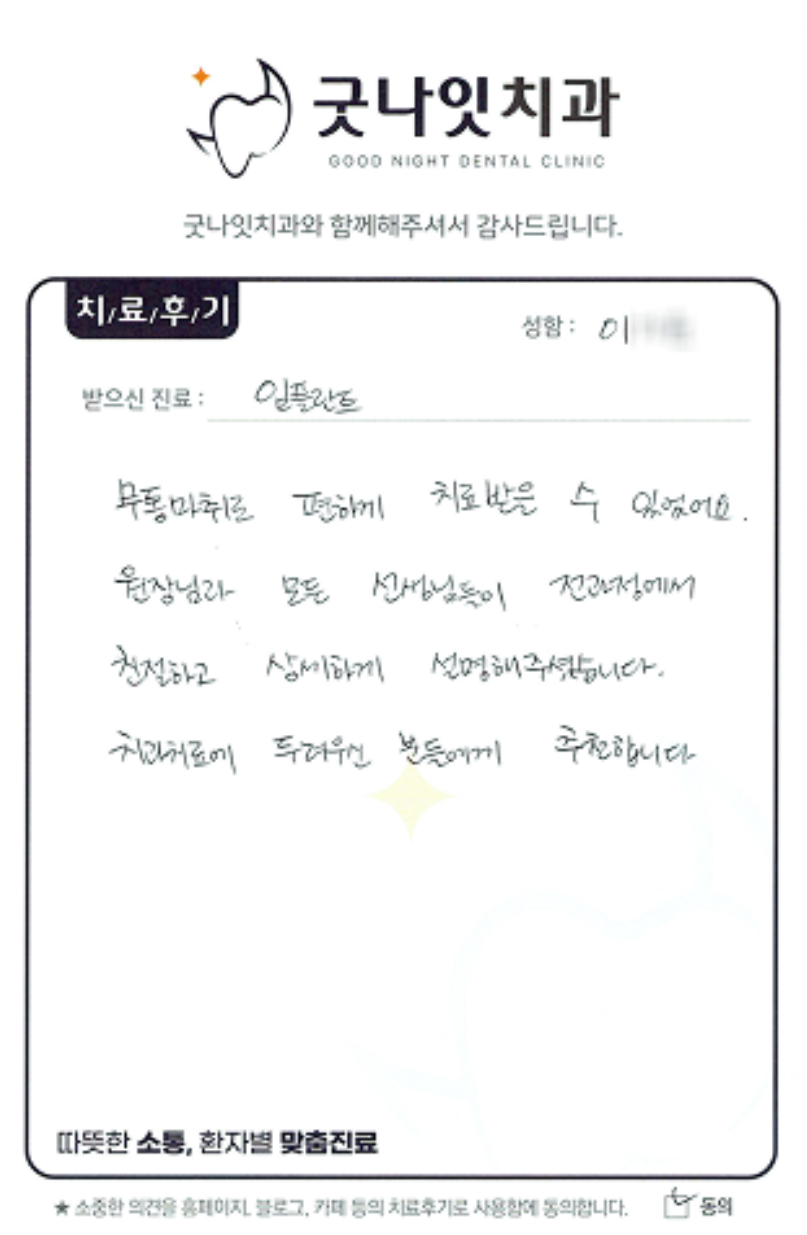 굿나잇치과
GOOD NIGHT DENTAL CLINIC
굿나잇치과와 함께해주셔서 감사드립니다.
치/료/후/기
성함 : 이
받으신 진료 : 임플란트
무통마취로 편하게 치료받을 수 있었어요.
원장님과 모든 선생님들이 전과정에서
친절하고 상세하게 설명해주셨습니다.
치과치료에 두려우신 분들에게 추천합니다
따뜻한 소통, 환자별 맞춤진료
★ 소중한 의견을 홈페이지, 블로그, 카페 등의 치료후기로 사용함에 동의합니다. 동의